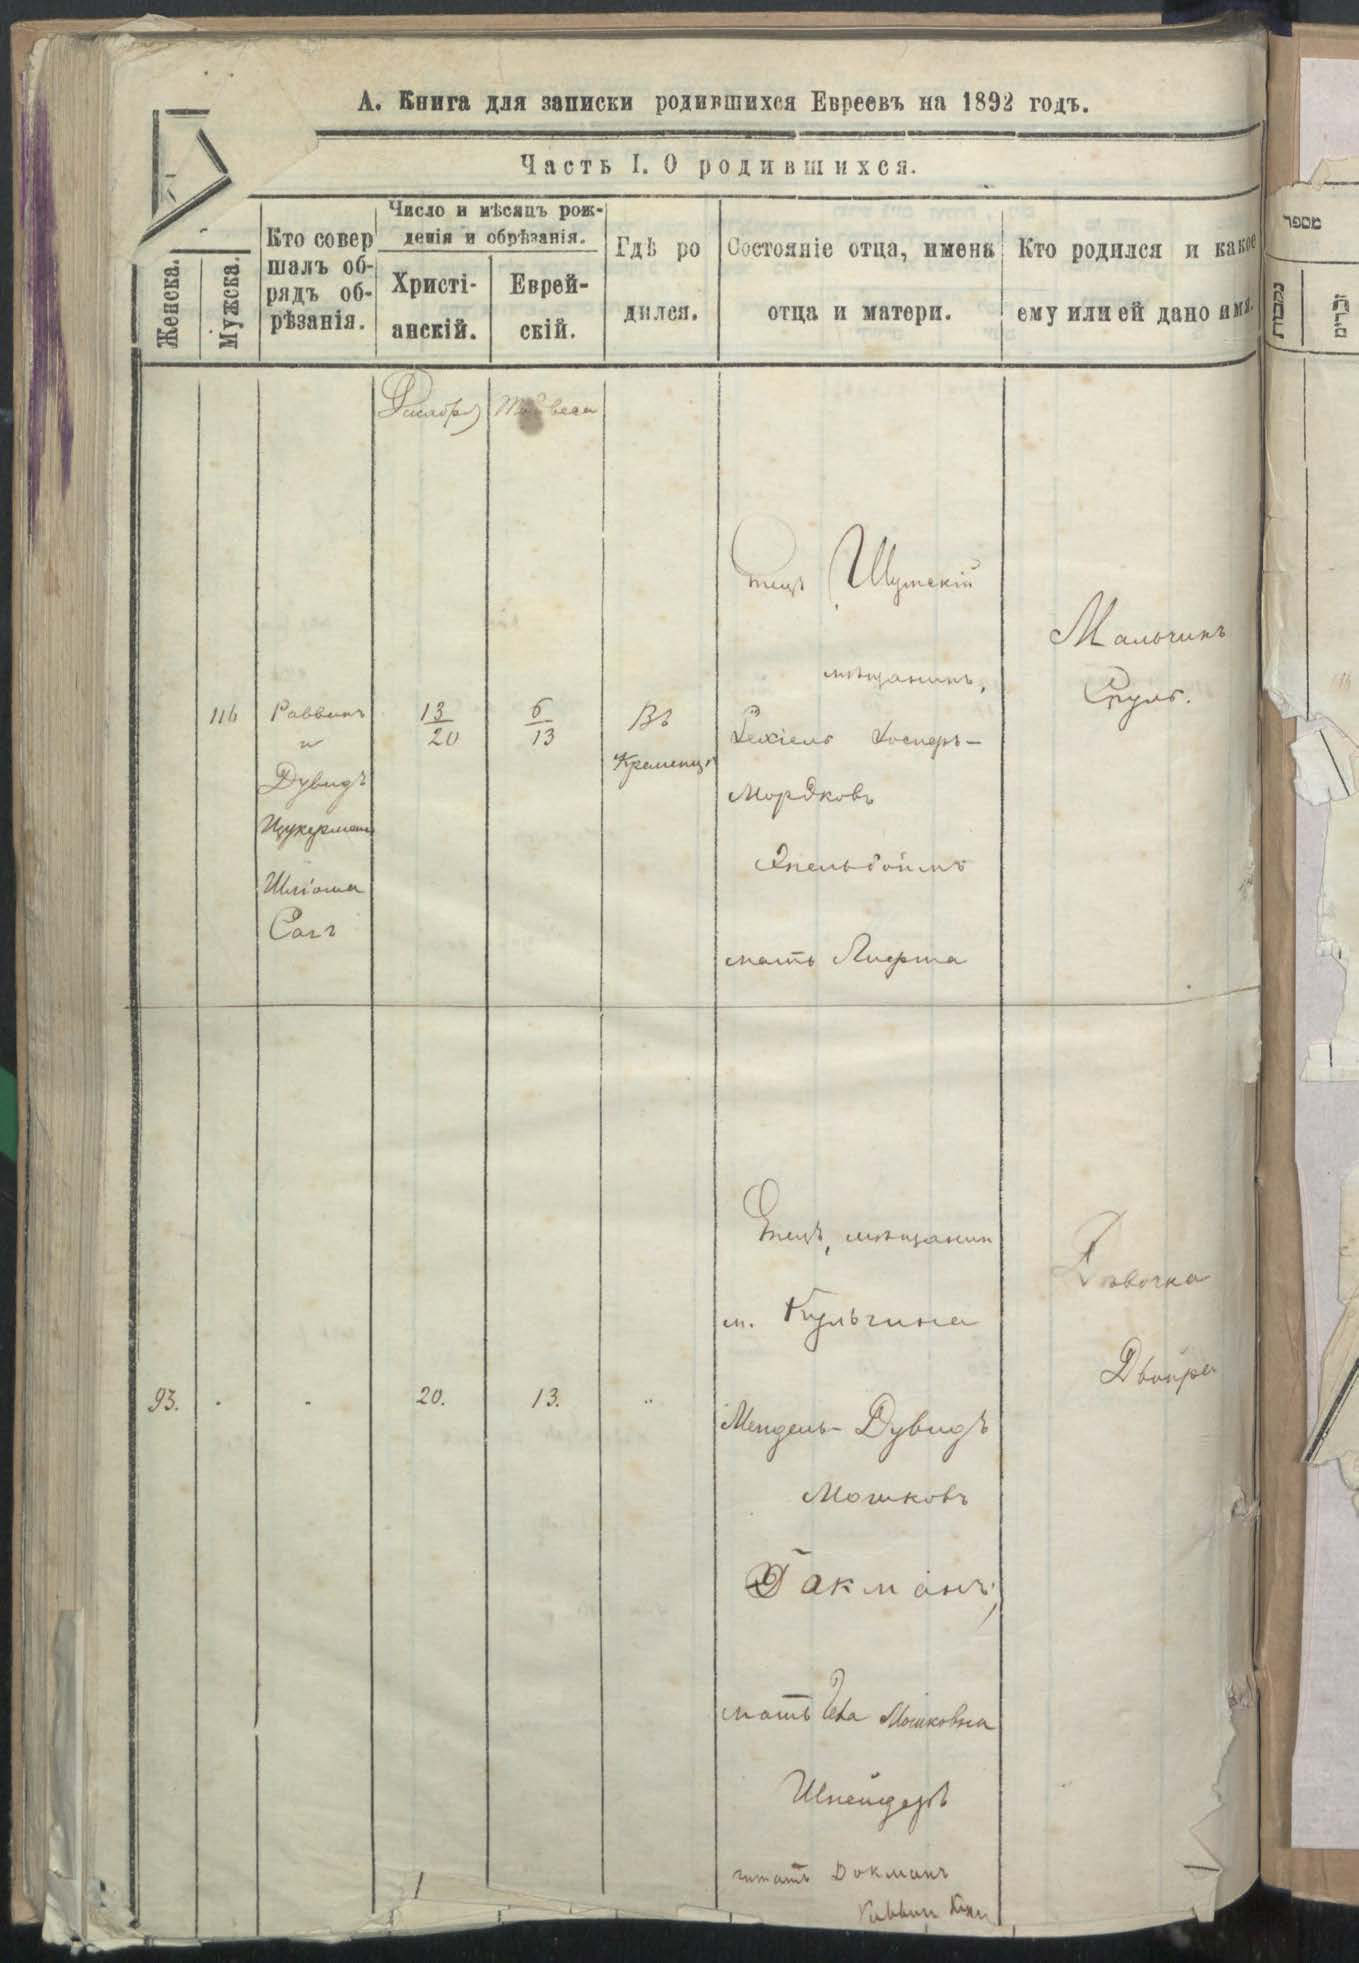 А. Книга для записки родившихся Евреевъ на 1892 годъ.
Часть I. О родившихся.
Женска.
Мужска.
Кто совер
шалъ об-
рядъ об-
рѣзанія.
Число и мѣсяцъ рож-
денія и обрѣзанія.
Христі-
анскій.
Еврей-
скій.
Гдѣ ро
дился.
Состояніе отца, имена
отца и матери.
Кто родился и какое
ему или ей дано имя.
מספר
נקבות
זכרים
Декабрь
116
Раввинъ
и
Дувидъ
Цукерманъ
Шліома
13
20
6
13
Въ
Кременцѣ
Отецъ Шумскій
мѣщанинъ,
Іехіель Іосперъ-
Мордковъ
Эпельбоймъ
мать
Мальчикъ
Сруль.
93.
20.
13.
Отецъ, мѣщанинъ
м. Кульчина
Мендель-Дувидъ
Мошковъ
Дакманъ,
мать Мошковна
Шнейдеръ
читать Докманъ
Раввинъ
Дѣвочка
Двойра